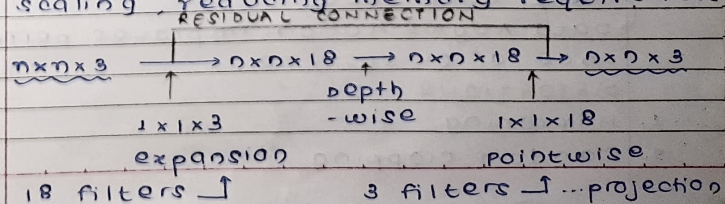 scaling, reducing memory
RESIDUAL CONNECTION
n×n×3 → n×n×18 → n×n×18 → n×n×3
Depth
1×1×3 -wise 1×1×18
expansion pointwise
18 filters 3 filters ...projection